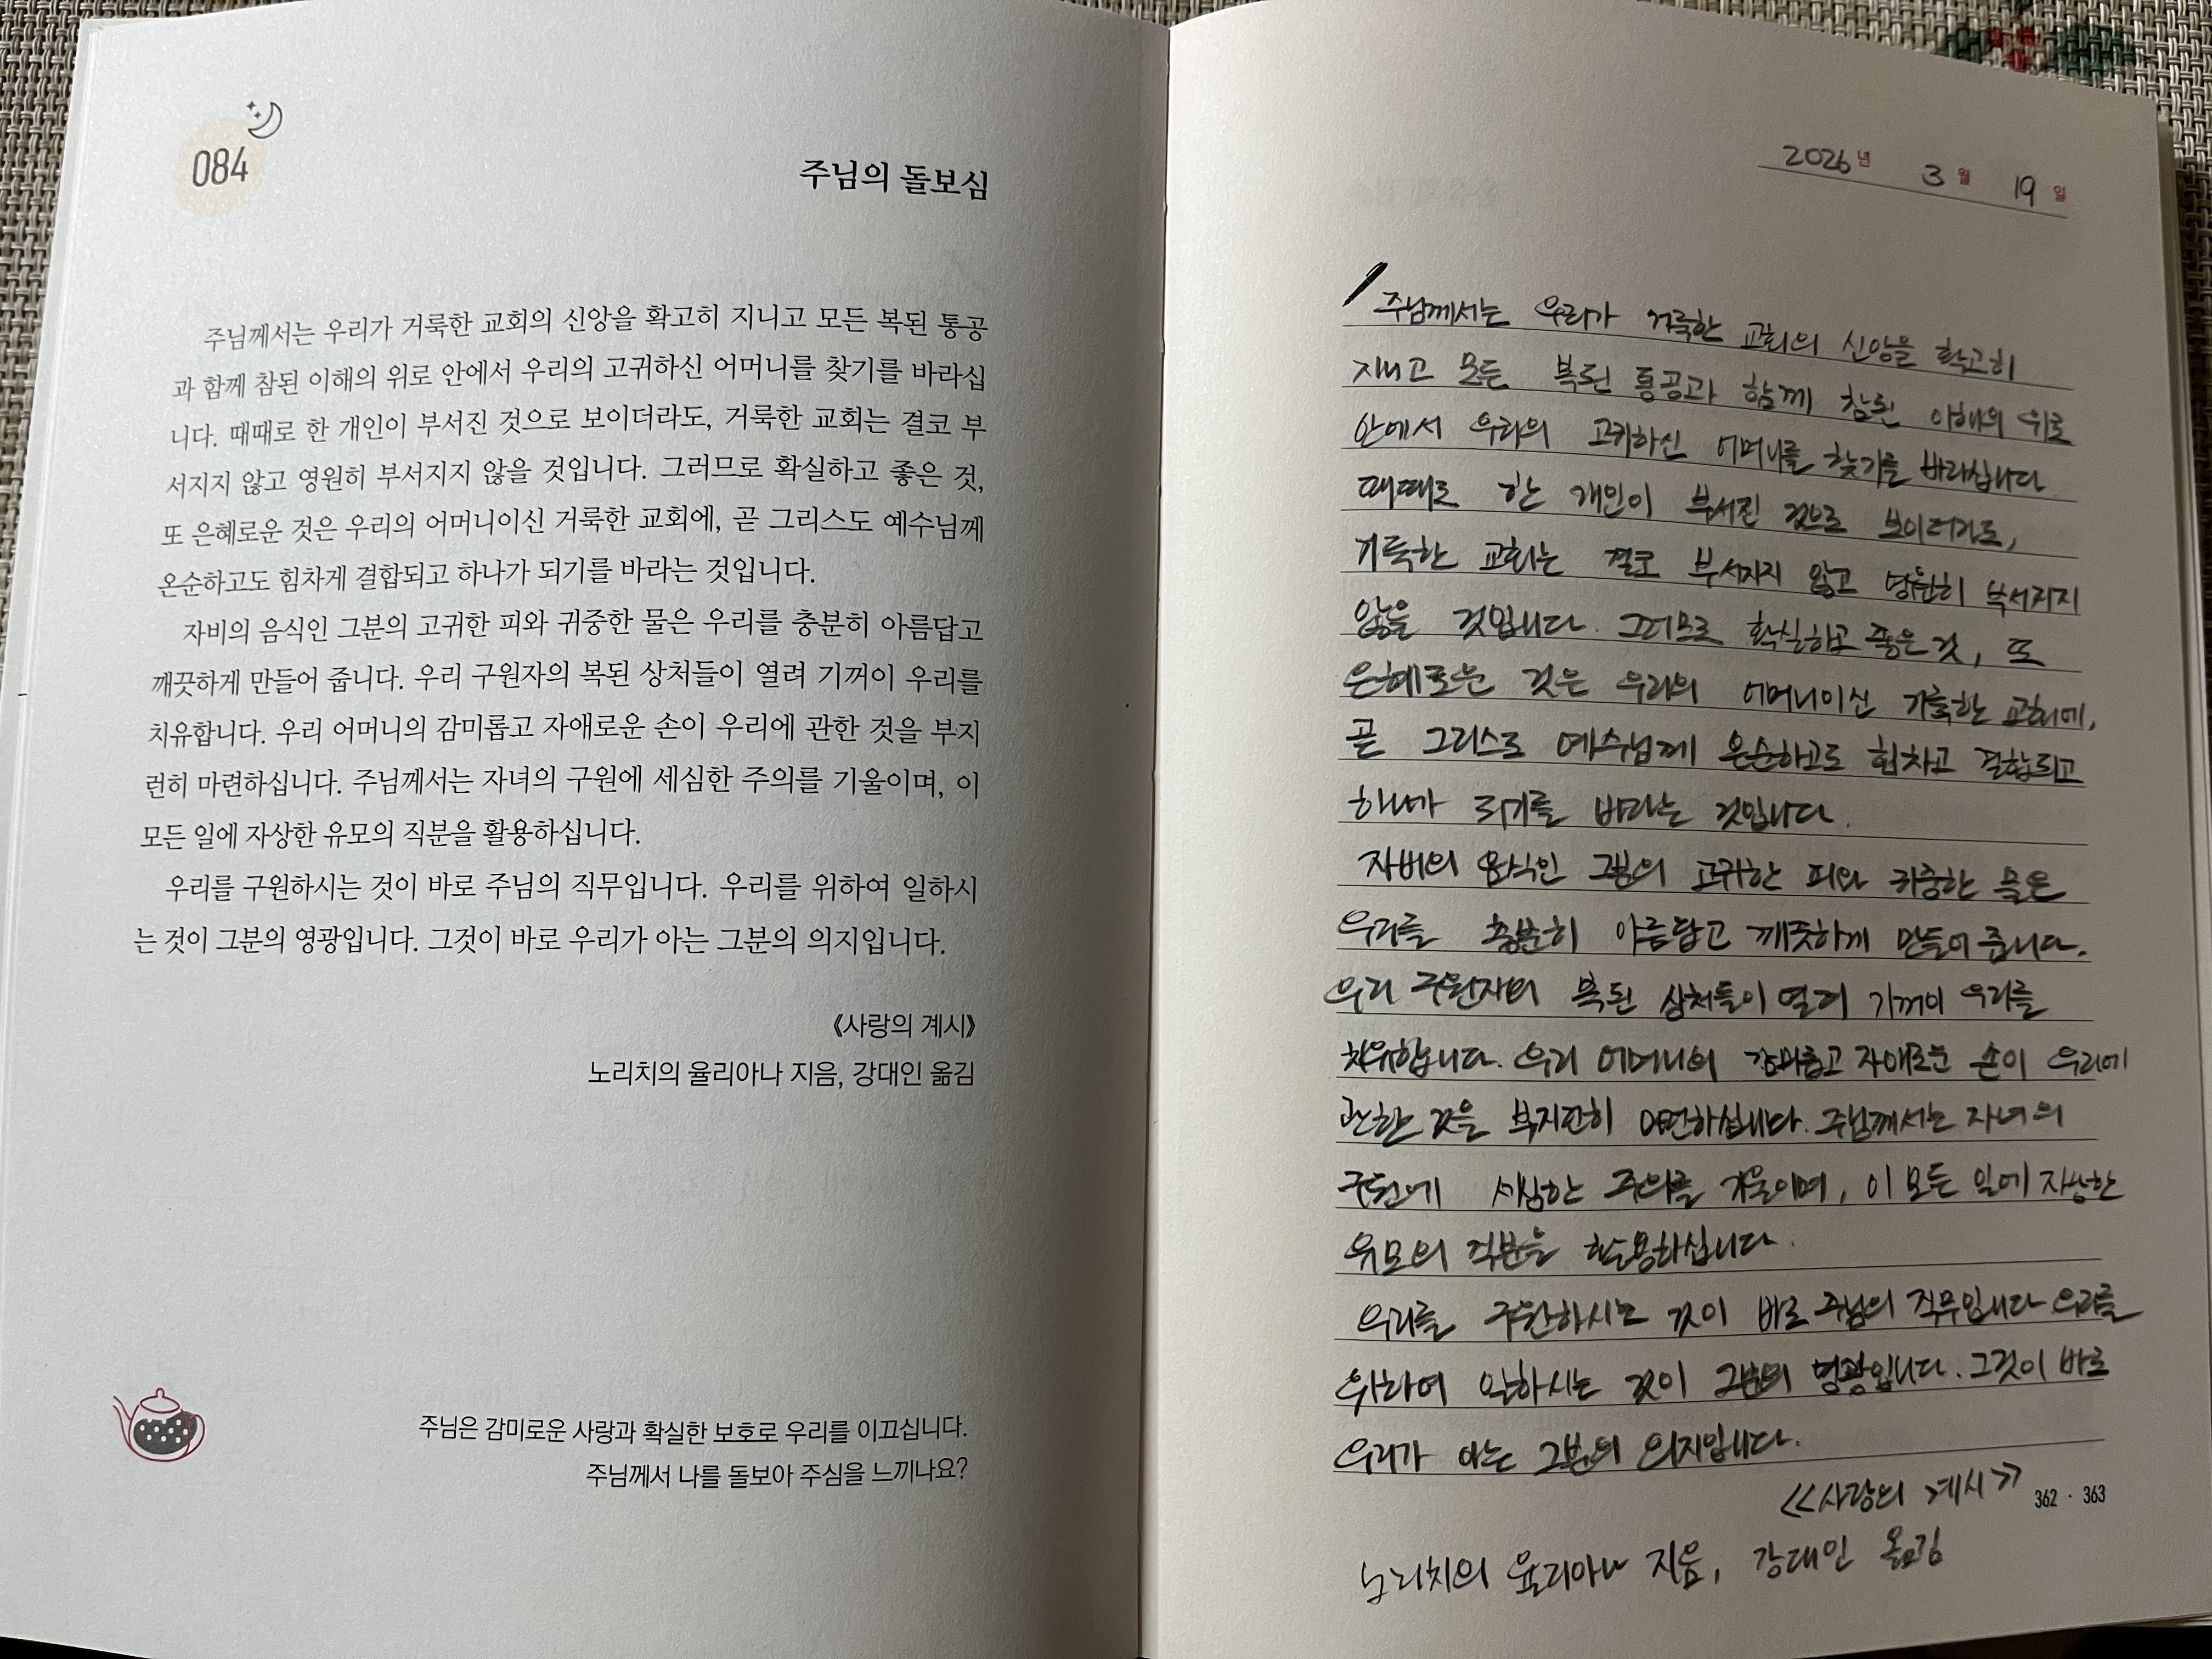 084
주님의 돌보심
주님께서는 우리가 거룩한 교회의 신앙을 확고히 지니고 모든 복된 통공
과 함께 참된 이해의 위로 안에서 우리의 고귀하신 어머니를 찾기를 바라십
니다. 때때로 한 개인이 부서진 것으로 보이더라도, 거룩한 교회는 결코 부
서지지 않고 영원히 부서지지 않을 것입니다. 그러므로 확실하고 좋은 것,
또 은혜로운 것은 우리의 어머니이신 거룩한 교회에, 곧 그리스도 예수님께
온순하고도 힘차게 결합되고 하나가 되기를 바라는 것입니다.
자비의 음식인 그분의 고귀한 피와 귀중한 물은 우리를 충분히 아름답고
깨끗하게 만들어 줍니다. 우리 구원자의 복된 상처들이 열려 기꺼이 우리를
치유합니다. 우리 어머니의 감미롭고 자애로운 손이 우리에 관한 것을 부지
런히 마련하십니다. 주님께서는 자녀의 구원에 세심한 주의를 기울이며, 이
모든 일에 자상한 유모의 직분을 활용하십니다.
우리를 구원하시는 것이 바로 주님의 직무입니다. 우리를 위하여 일하시
는 것이 그분의 영광입니다. 그것이 바로 우리가 아는 그분의 의지입니다.
《사랑의 계시》
노리치의 율리아나 지음, 강대인 옮김
주님은 감미로운 사랑과 확실한 보호로 우리를 이끄십니다.
주님께서 나를 돌보아 주심을 느끼나요?
2026년 3월 19일
주님께서는 우리가 거룩한 교회의 신앙을 확고히
지니고 모든 복된 통공과 함께 참된 이해의 위로
안에서 우리의 고귀하신 어머니를 찾기를 바라십니다
때때로 한 개인이 부서진 것으로 보이더라도,
거룩한 교회는 결코 부서지지 않고 영원히 부서지지
않을 것입니다. 그러므로 확실하고 좋은 것, 또
은혜로운 것은 우리의 어머니이신 거룩한 교회에,
곧 그리스도 예수님께 온순하고도 힘차고 결합되고
하나가 되기를 바라는 것입니다.
자비의 음식인 그분의 고귀한 피와 귀중한 물은
우리를 충분히 아름답고 깨끗하게 만들어 줍니다.
우리 구원자의 복된 상처들이 열려 기꺼이 우리를
치유합니다. 우리 어머니의 감미롭고 자애로운 손이 우리에
관한 것을 부지런히 마련하십니다. 주님께서는 자녀의
구원에 세심한 주의를 기울이며, 이 모든 일에 자상한
유모의 직분을 활용하십니다.
우리를 구원하시는 것이 바로 주님의 직무입니다 우리를
위하여 일하시는 것이 그분의 영광입니다. 그것이 바로
우리가 아는 그분의 의지입니다.
<<사랑의 계시>>
362 · 363
노리치의 율리아나 지음, 강대인 옮김